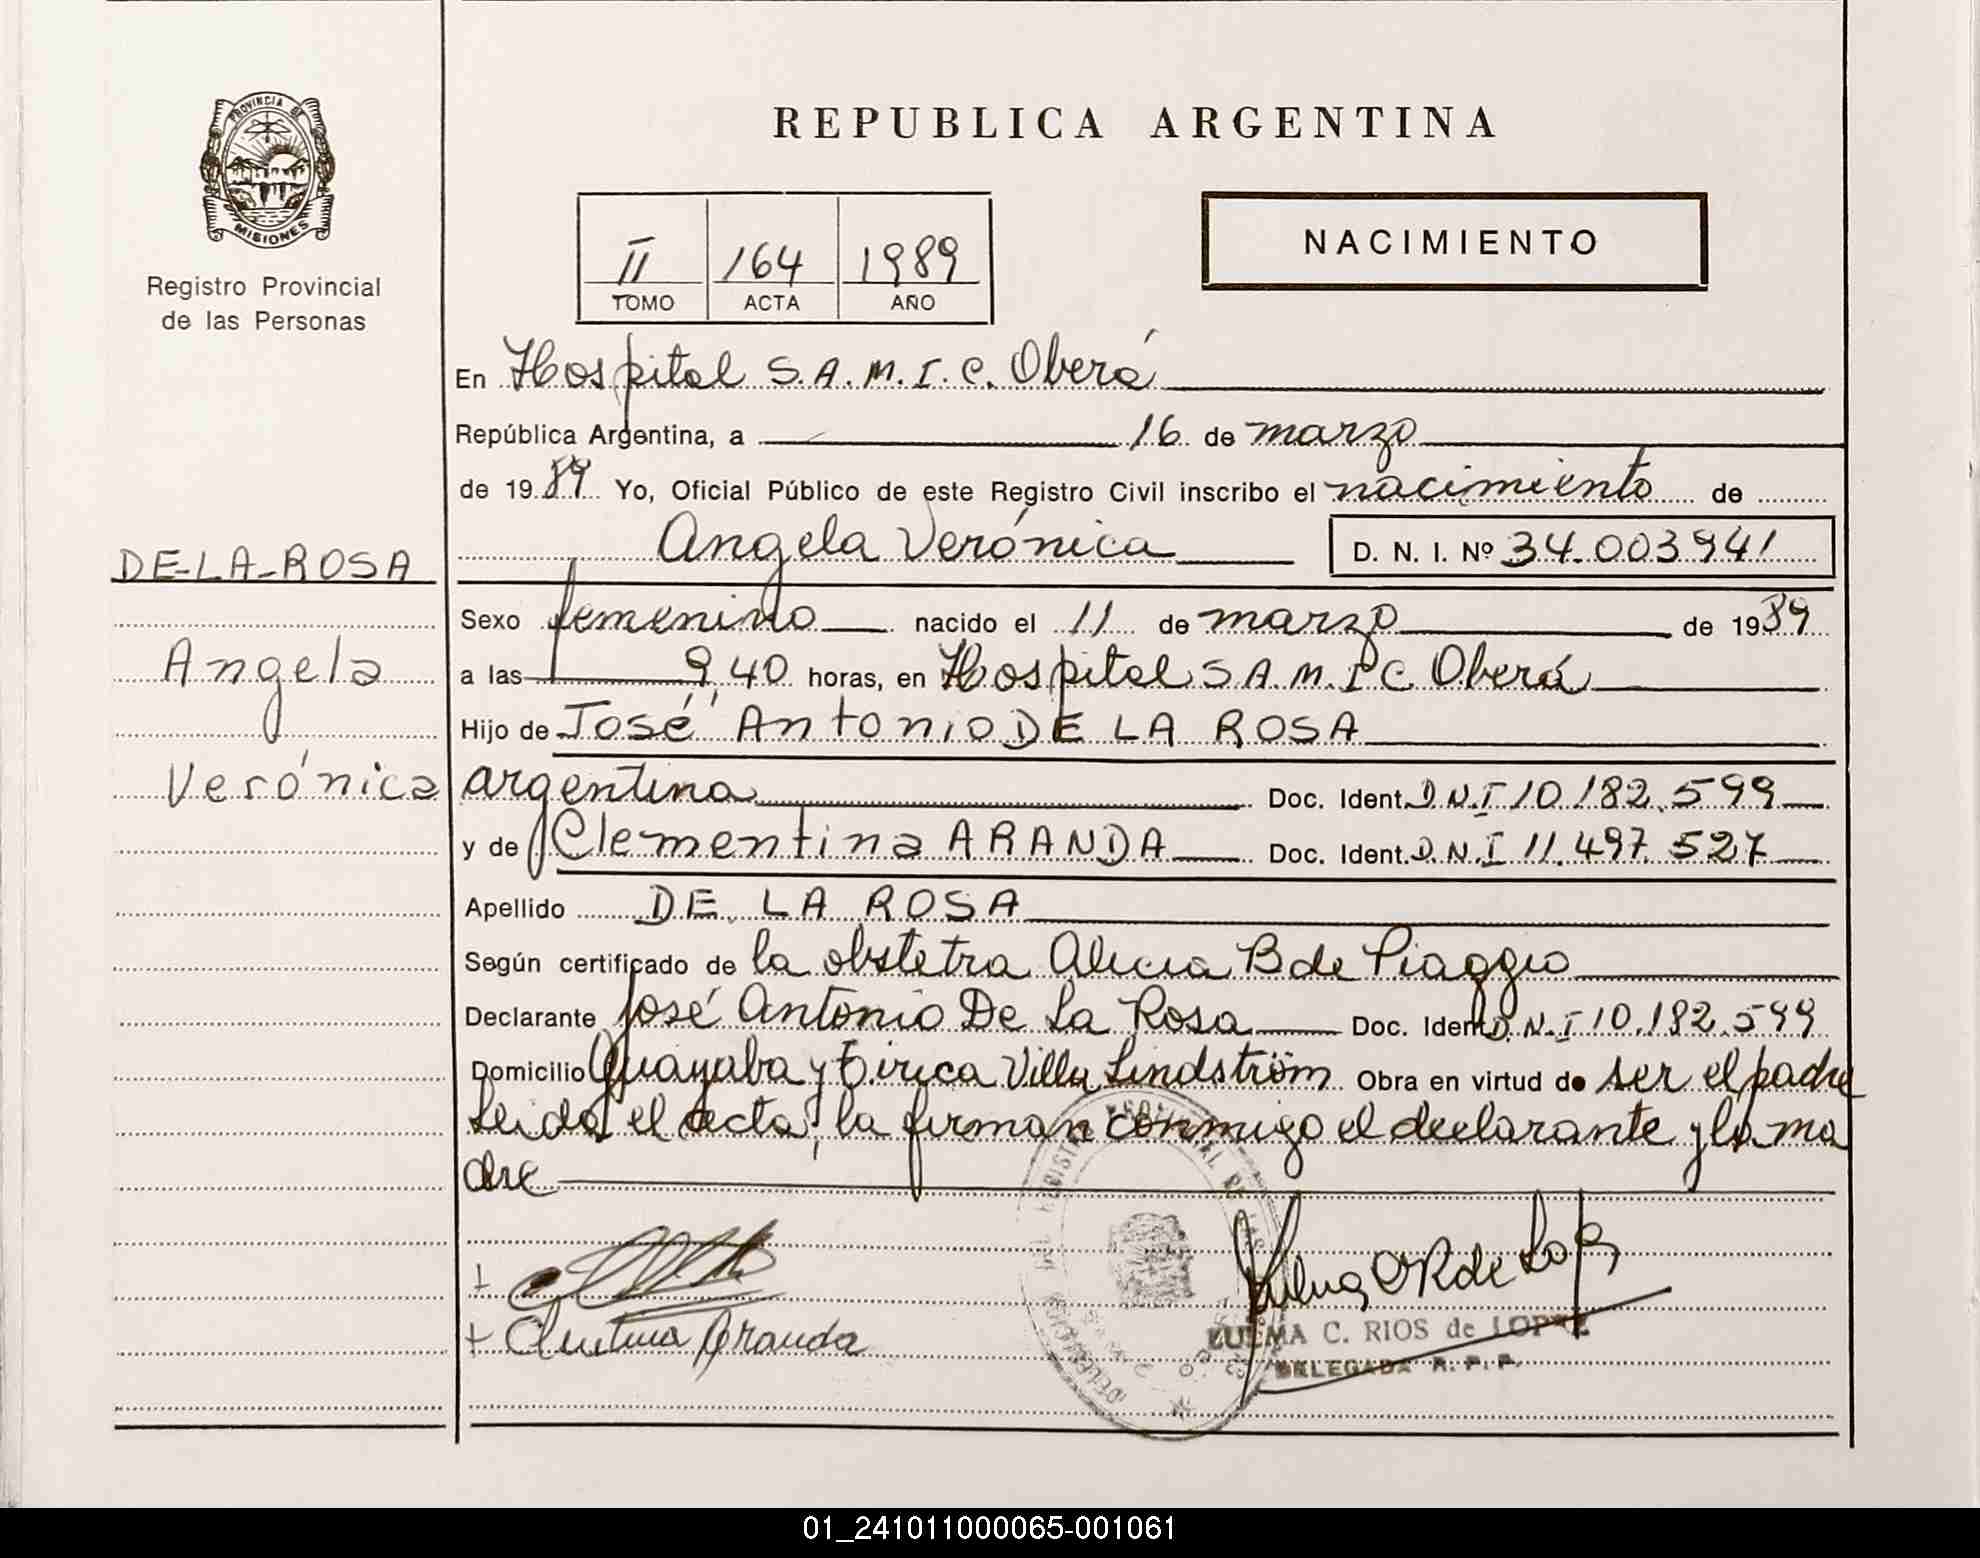 PROVINCIA DE
MISIONES
Registro Provincial
de las Personas
DE-LA-ROSA
Angela
Verónica
REPUBLICA ARGENTINA
II 164 1989
TOMO ACTA AÑO
NACIMIENTO
En Hospital S.A.M.I.C. Oberá
República Argentina, a 16 de marzo
de 1989 Yo, Oficial Público de este Registro Civil inscribo el nacimiento de
Angela Verónica D. N. I. Nº 34.003.941
Sexo femenino nacido el 11 de marzo de 1989
a las 9,40 horas, en Hospital S.A.M.I.C. Oberá
Hijo de José Antonio DE LA ROSA
argentina Doc. Ident. D.N.I 10.182.599
y de Clementina ARANDA Doc. Ident. D.N.I 11.497.527
Apellido DE LA ROSA
Según certificado de la obstetra Alicia B de Piaggio
Declarante José Antonio De La Rosa Doc. Ident. D.N.I 10.182.599
Domicilio Guayaba y Tirica Villa Lindström Obra en virtud de ser el padre
Leida el acta, la firman conmigo el declarante y la ma
dre
+
+ Clementina Aranda
ZULMA C. RIOS de LOPEZ
DELEGADA R. P. P.
01_241011000065-001061